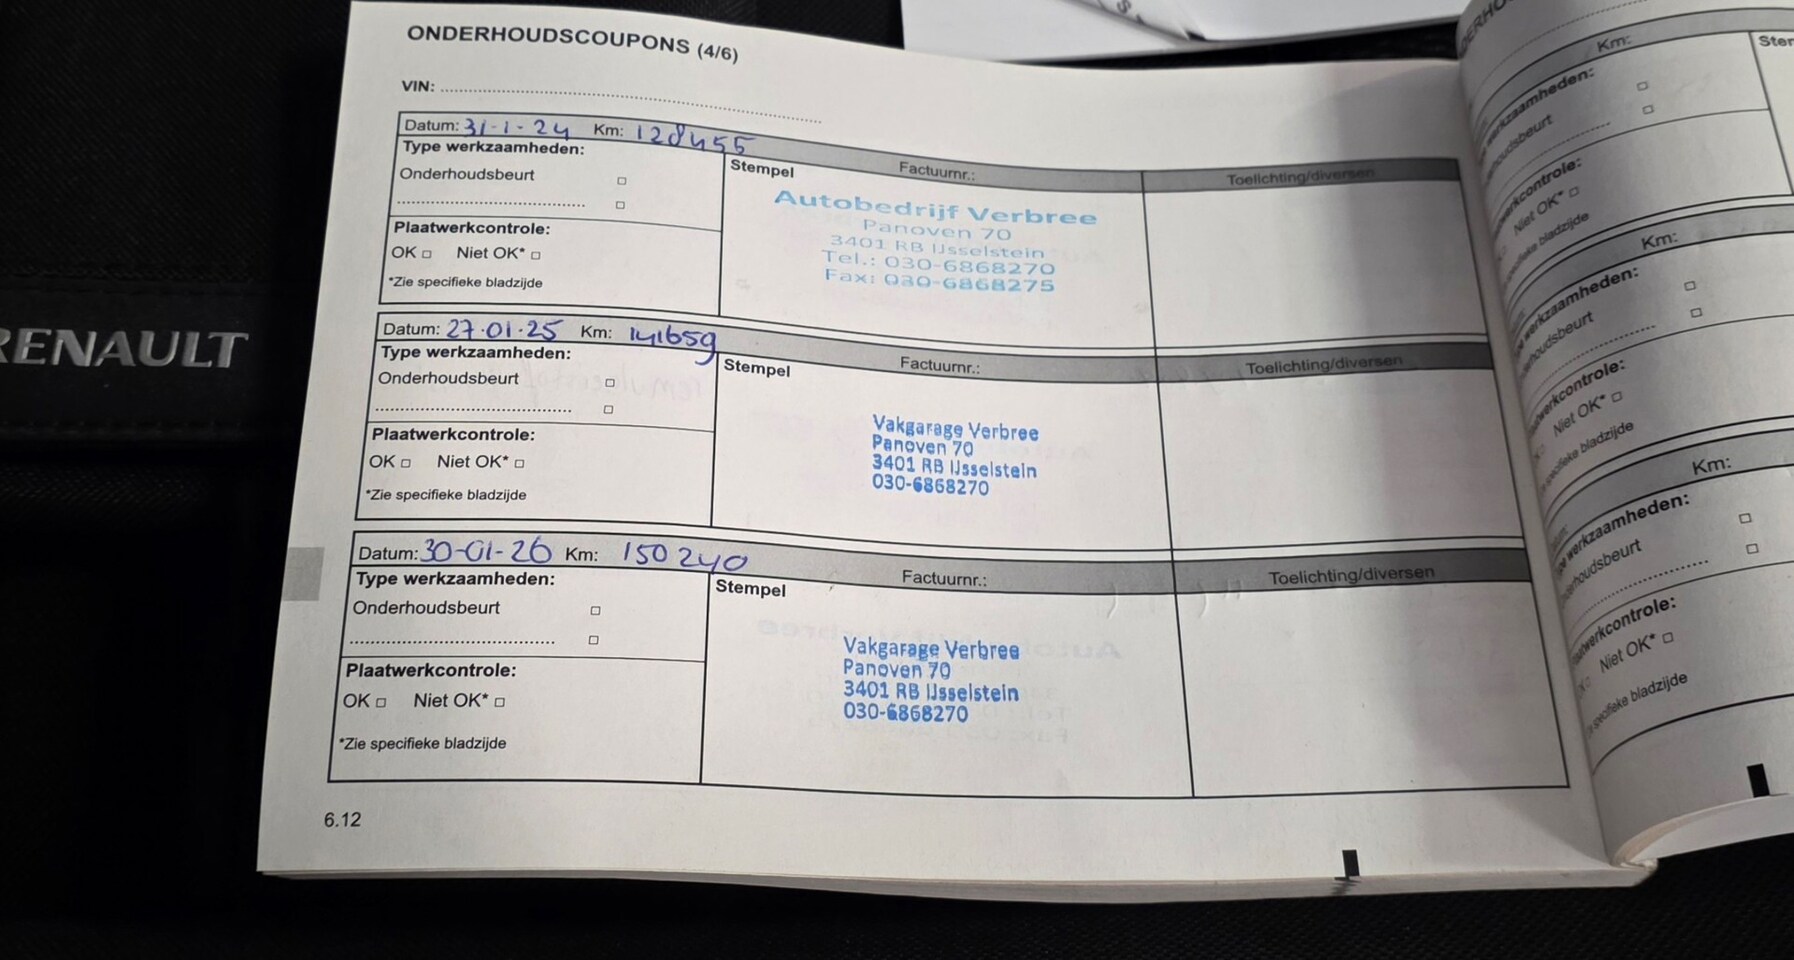 ONDERHOUDSCOUPONS (4/6)
VIN:
Datum: 31-1-24 Km: 128455
Type werkzaamheden:
Onderhoudsbeurt
Plaatwerkcontrole:
OK □ Niet OK* □
*Zie specifieke bladzijde
Stempel
Factuurnr.:
Toelichting/diversen
Autobedrijf Verbree
Panoven 70
3401 RB IJsselstein
Tel.: 030-6868270
Fax: 030-6868275
Datum: 27·01·25 Km: 141659
Type werkzaamheden:
Onderhoudsbeurt
Plaatwerkcontrole:
OK □ Niet OK* □
*Zie specifieke bladzijde
Stempel
Factuurnr.:
Toelichting/diversen
Vakgarage Verbree
Panoven 70
3401 RB IJsselstein
030-6868270
Datum: 30-01-26 Km: 150240
Type werkzaamheden:
Onderhoudsbeurt
Plaatwerkcontrole:
OK □ Niet OK* □
*Zie specifieke bladzijde
Stempel
Factuurnr.:
Toelichting/diversen
Vakgarage Verbree
Panoven 70
3401 RB IJsselstein
030-6868270
6.12
RENAULT
Km:
werkzaamheden:
Niet OK* □
Km:
werkzaamheden:
Niet OK* □
Km:
werkzaamheden:
Niet OK* □